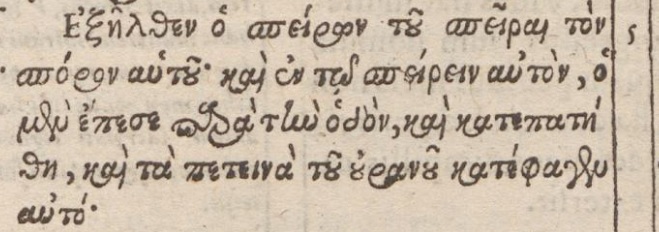 Ἐξῆλθεν ὁ σπείρων τοῦ σπεῖραι τὸν 5
σπόρον αὑτοῦ· καὶ ἐν τῷ σπείρειν αὐτὸν, ὃ
μὲν ἔπεσε παρὰ τὴν ὁδὸν, καὶ κατεπατή
θη, καὶ τὰ πετεινὰ τοῦ οὐρανοῦ κατέφαγεν
αὐτό·